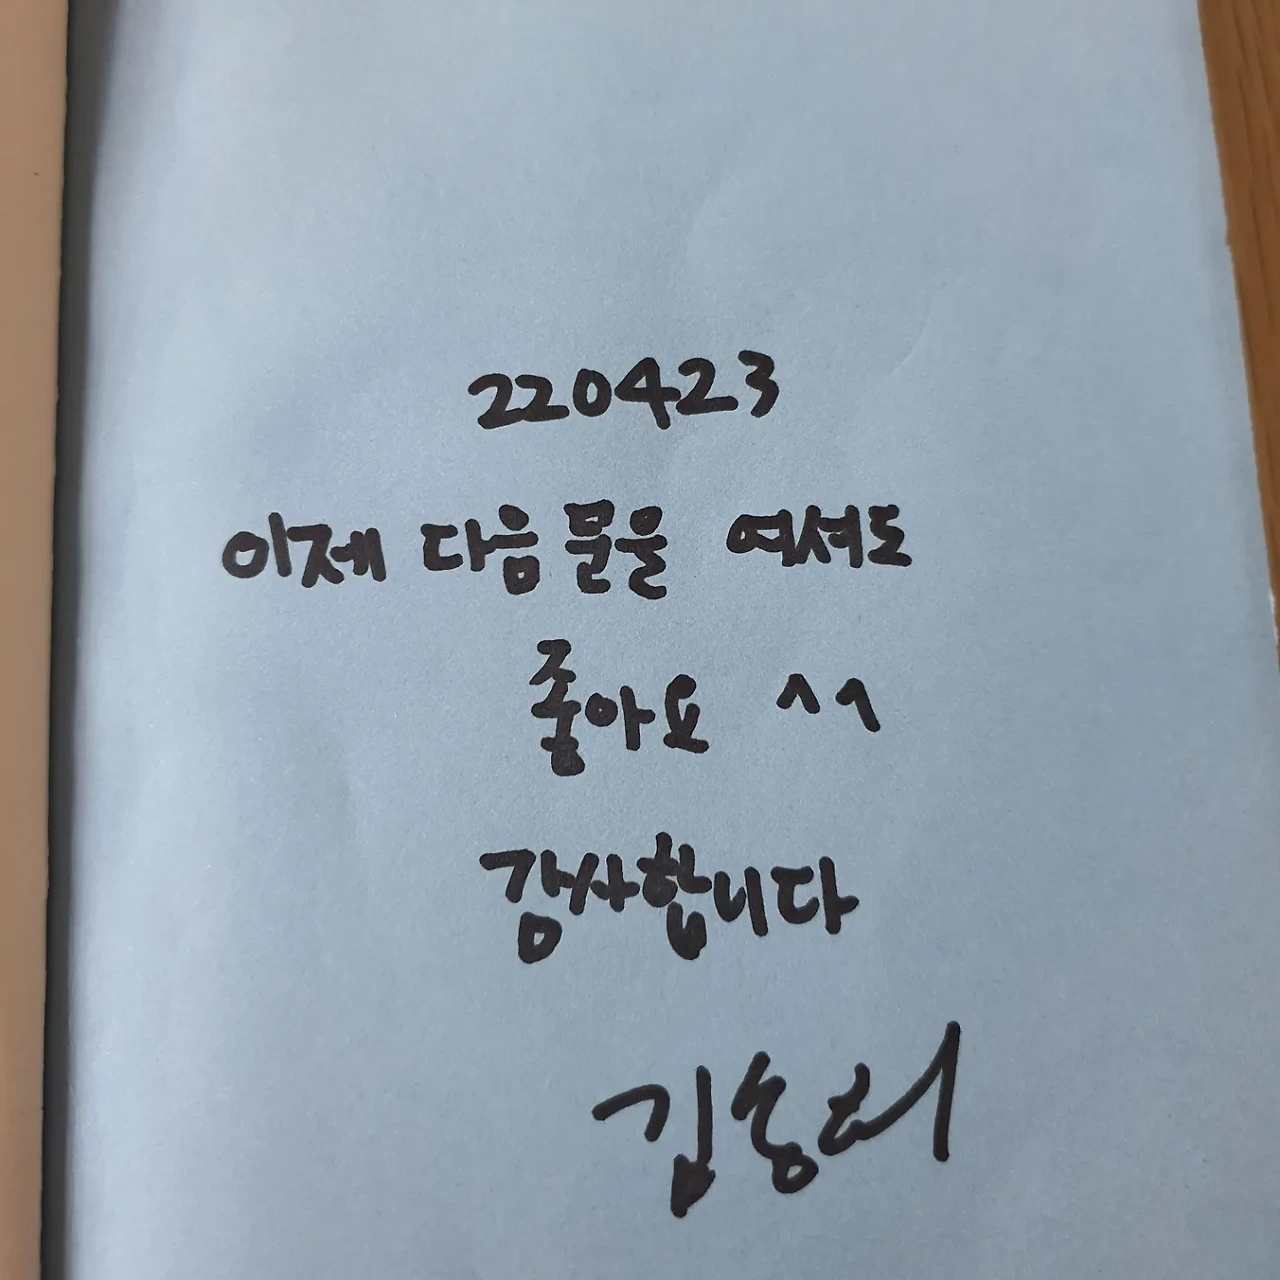 220423
이제 다음 문을 여셔도
좋아요 ^^
감사합니다